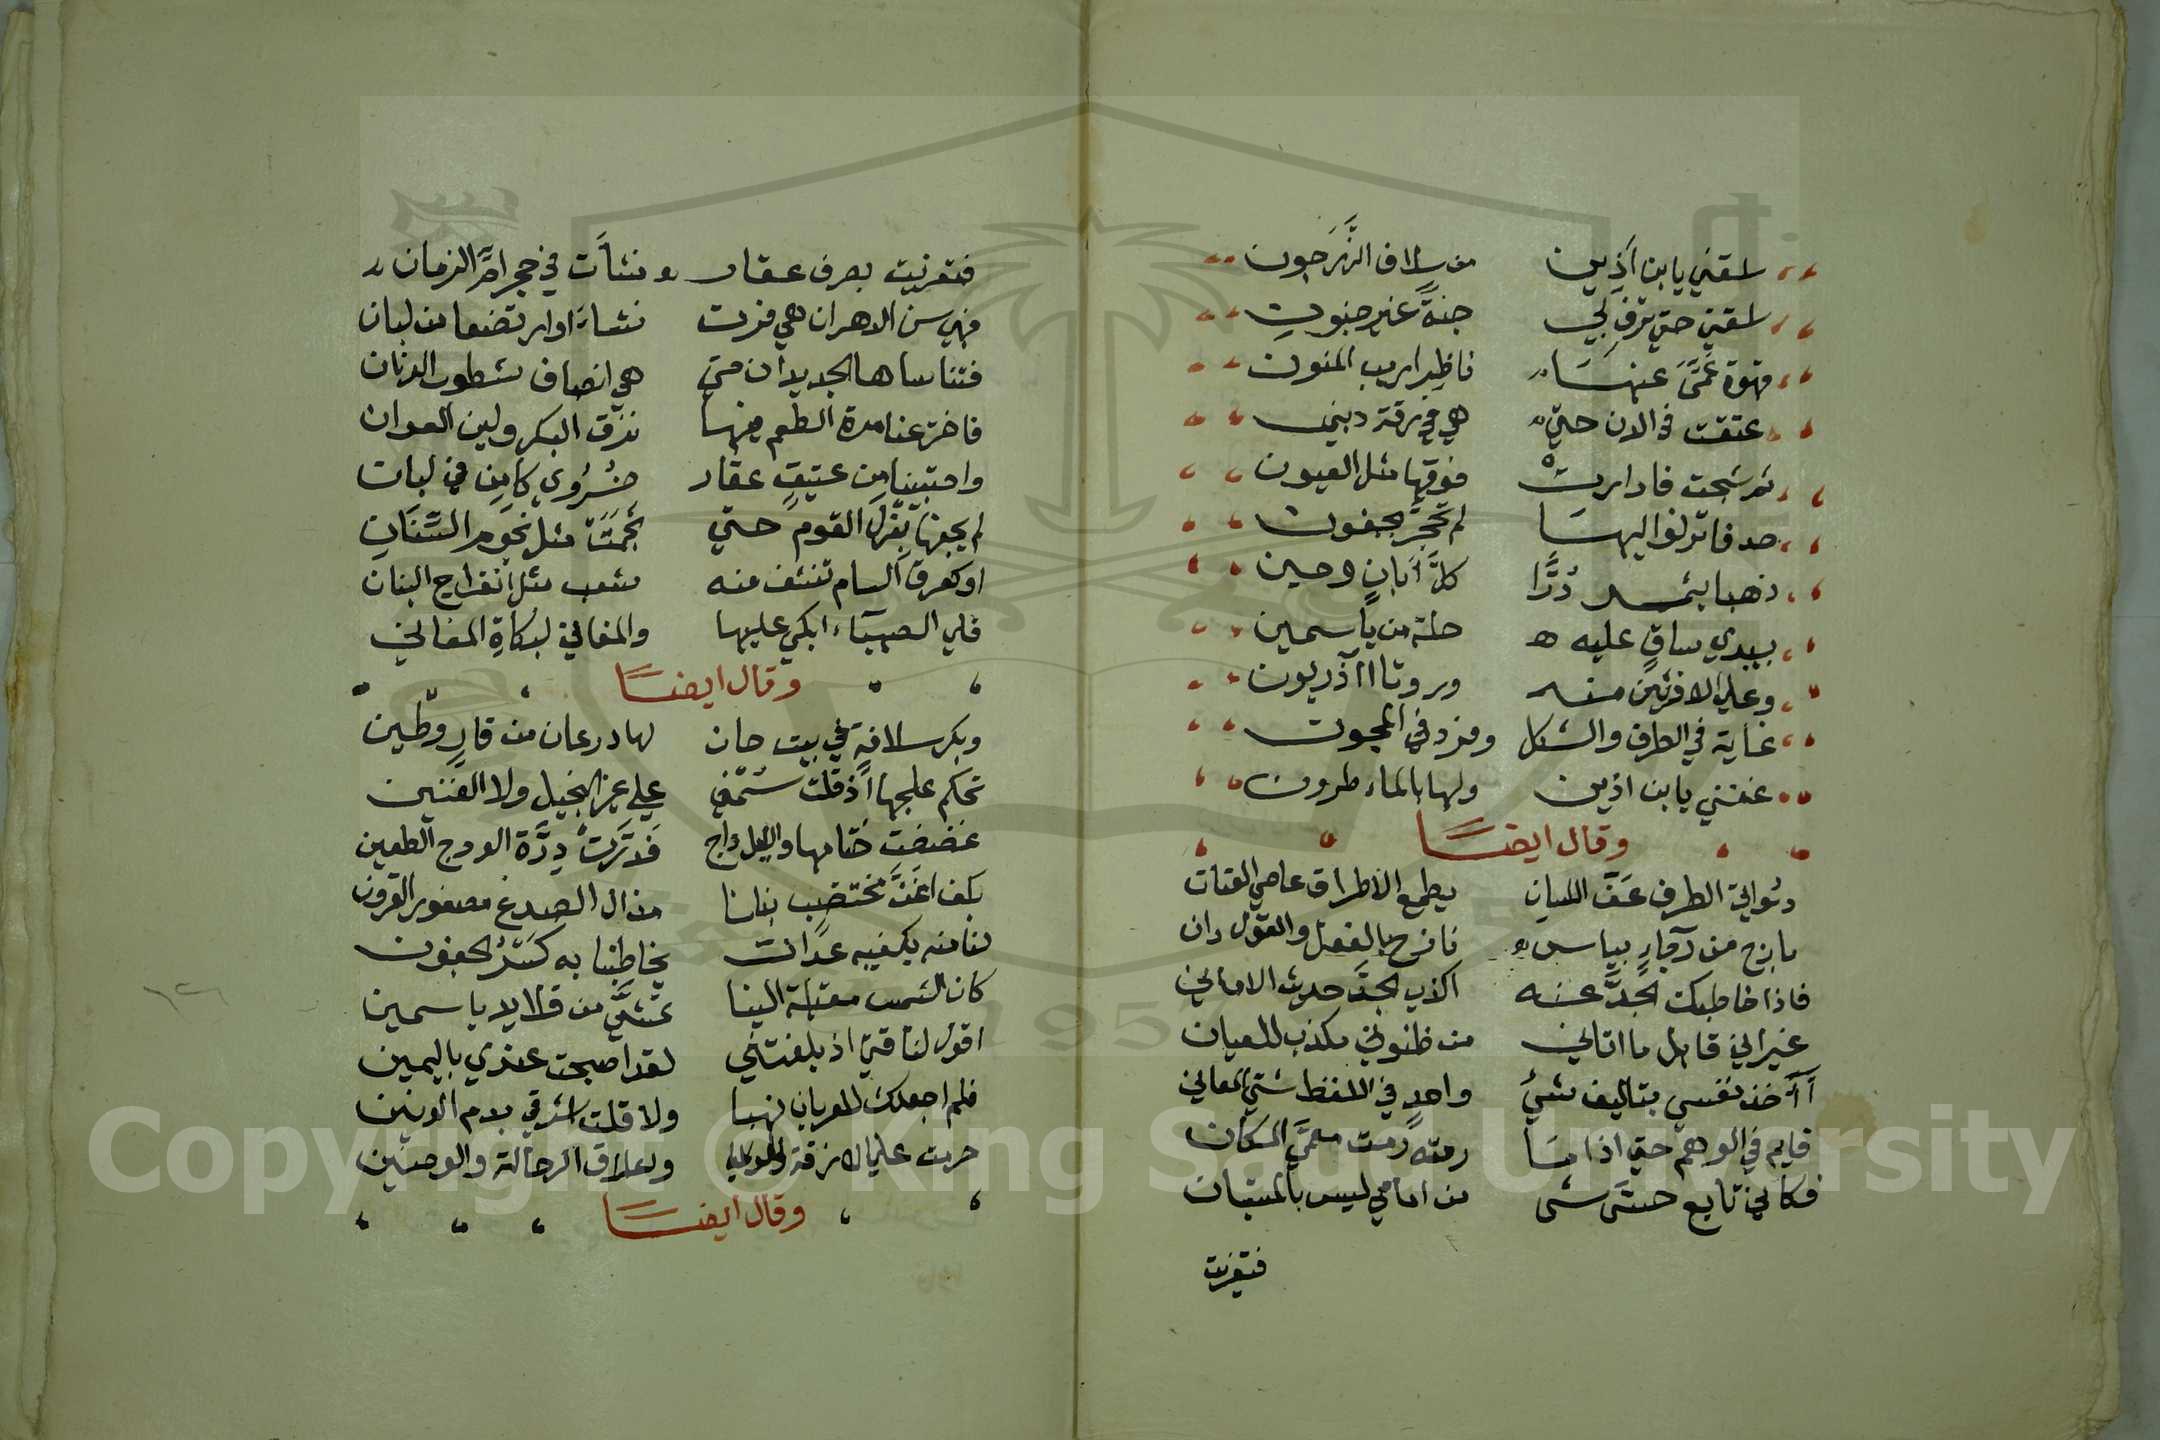 اسقني يا بن اذين من سلاف الزرجون
اسقني حتي تري بي جنة غير جنون
قهوة عمي عنها ناظرا ريب المنون
عتقت في الدن حتي هي في رقة ديني
ثم شجت فادارت فوقها مثل العيون
حدقا ترنو اليها لم تحجر بجفون
ذهبا يثمر درا كل ابان وحين
بيدي ساق عليه حلة من ياسمين
وعلي الاذنين منه وردتا اآذريون
غاية في الظرف والشكل وفرد في المجون
غنني يا بن اذين ولها بالماطرون
وقال ايضا
الطرف عف اللسان يطمع الاطراق عاصي العنان
نازح بالفعل والقول دان
فاذا خاطبك الجد عنه اكذب الجد حديث الاماني
غير اني قايل ما اتاني من ظنوني مكذب للعيان
آخذ نفسي بتاليف شيء واحد في اللفظ شتي المعاني
قايم في الوهم حتي اذا ما رمته رمت معمي المكان
فكاني تابع حسن شي من امامي ليس بالمستبان
فتعزيت
فتعزيت بصرف عقار ونشأت في حجر ام الزمان
فتناساها الجديدان حتي هي انصاف شطور الدنان
فافترعنا مرة الطعم فيها نزق البكر ولين العوان
واحتسينا من عتيق عقار خسروي كامن في لبان
لم يجفها مبزل القوم حتي نجمت مثل نجوم السنان
او كعرق السام تنشف منه شعب مثل انفراج البنان
فلي الصهباء ابكي عليها والمغاني لبكاة المغاني
وقال ايضا
وبكر سلافة في بيت حان لها درعان من قار وطين
تحكم علجها اذ قلت سمني علي غير البخيل ولا الضنين
فضضت ختامها والليل داج فدرت درة الودج الطعين
بكف اغن مختضب بنانا مذال الصدغ مضفور القرون
لنا منه بكفيه عدات يخاطبنا به كسر الجفون
كان الشمس مقبلة الينا تمشي من قلايد ياسمين
اقول لناقتي اذ بلغتني لقد اصبحت عندي باليمين
فلم اجعلك للعربان نهبا ولا قلت اشرقي بدم الوتين
حرمت علي الازمة والولايا واعلاق الرحالة والوضين
وقال ايضا